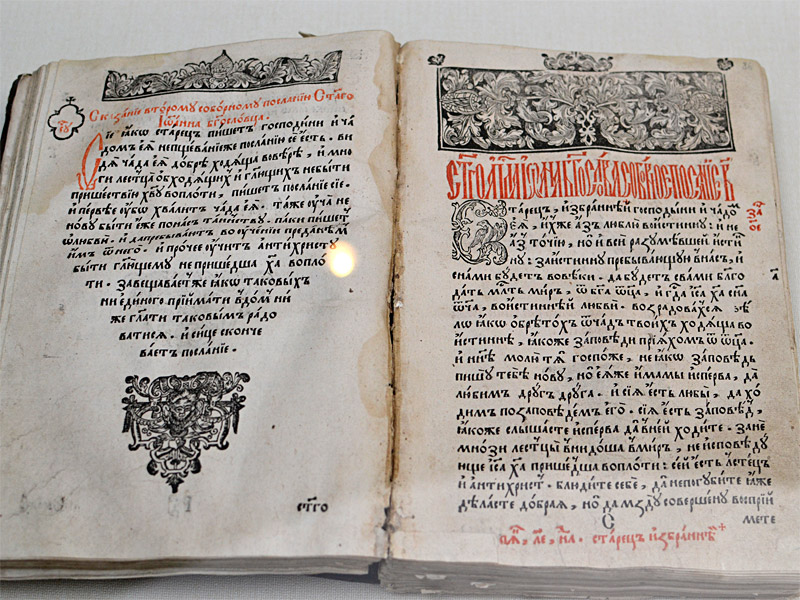 Сказанїе второму соборному посланїю Ст҃аго
Іѡанна бг҃ослоѵца.
Сїе ꙗкѡ старецъ пишетъ господїни и ча
домъ еѧ̀ непщеванїеже посланїю се есть. ви
дѧ чада еѧ̀ добрѣ ходѧща вовѣрѣ, и мно
ги лестца ѡбходѧщихъ и гл҃ющихъ небыти
пришествїю хв҃у воплоти, пишетъ посланїе сїе.
и первѣе оубѡ хвалитъ чада еѧ. таже оуча не
нову быти еже понасъ таинству. паки пишетъ
ѡлюбви. и
имъ ѿнего. и прочее оучитъ антихристу
быти гл҃ющему не пришедша хр҃та вопло
ти. завещаваетже ꙗкѡ таковыхъ
ни единого прїимати вдомъ ни
же гл҃ати таковымъ радо
ватисѧ. и сице сконче
ваетъ посланїе.
ст҃го
Ст҃го ап҃ла іѡанна бг҃ослова соборное посланїе в҃
Старецъ, избраннѣй господыни и чадо
еѧ, ихже азъ люблю воистинну: и не
азъ точїю, но и вси разумѣвшеи исти
ну: заистинну пребывающую внасъ, и
снами будетъ вовѣки. да будетъ свами бл҃го
дать, мл҃ть, миръ, ѿ бг҃а ѿц҃а, и гд҃а іс҃а хр҃та сн҃а
ѿч҃а, воистиннѣ и любви. возрадовахсѧ ѕѣ
лѡ ꙗкѡ ѡбрѣтохъ ѿчадъ твоихъ ходѧща во
истиннѣ, ꙗкоже заповѣди прїѧхомъ ѿ ѿц҃а.
и нн҃ѣ молю тѧ̀ госпоже, не ꙗкѡ заповѣдь
пишу тебѣ нову, но еюже имамы исперва, да
любимъ другъ друга. и сїѧ есть любы, да хо
димъ по заповѣдемъ егѡ. сїѧ есть заповѣдь,
ꙗкоже слышасте исперва да вней ходите. зане
мнози лестцы внидоша вмиръ, не исповѣду
юще іс҃а хр҃та пришедша воплоти: сей есть лестецъ
и антихристъ. блюдите себе, да непогубите ꙗже
дѣласте добраѧ, но да мзду совершену воспрїи
мете
старецъ избраннѣ